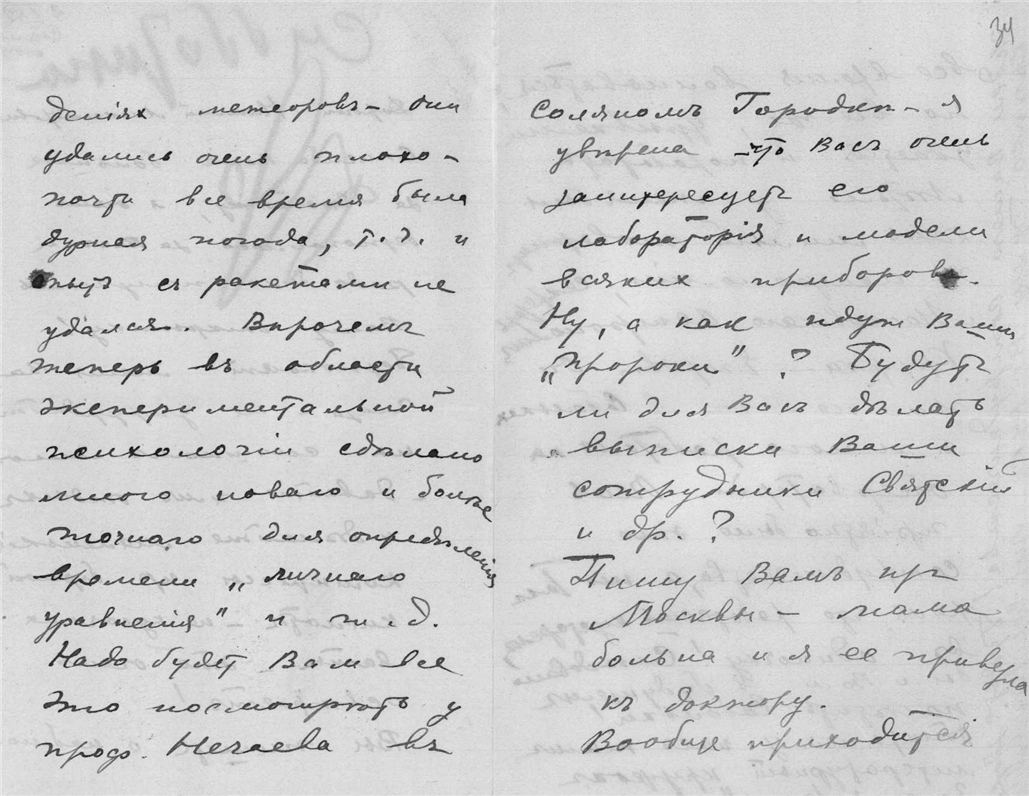 деніяхъ метеоровъ – они
удались очень плохо –
почти все время была
дурная погода, т. ч. и
опытъ съ ракетами не
удался. Впрочемъ
теперь въ области
экспериментальной
психологіи сдѣлано
много новаго и болѣе
точнаго для опредѣленія
времени „личнаго
уравненія" и т. д.
Надо будетъ Вам все
это посмотрѣть у
проф. Нечаева въ
34
Соляномъ Городкѣ – я
увѣрена что Васъ очень
заинтересуетъ его
лабораторія и модели
всяких приборовъ.
Ну, а как идут Ваши
„пророки" ? Будутъ
ли для Васъ дѣлать
выписки Ваши
сотрудники Святскій
и др. ?
Пишу Вамъ изъ
Москвы – мама
больна и я ее привезла
къ доктору.
Вообще приходится